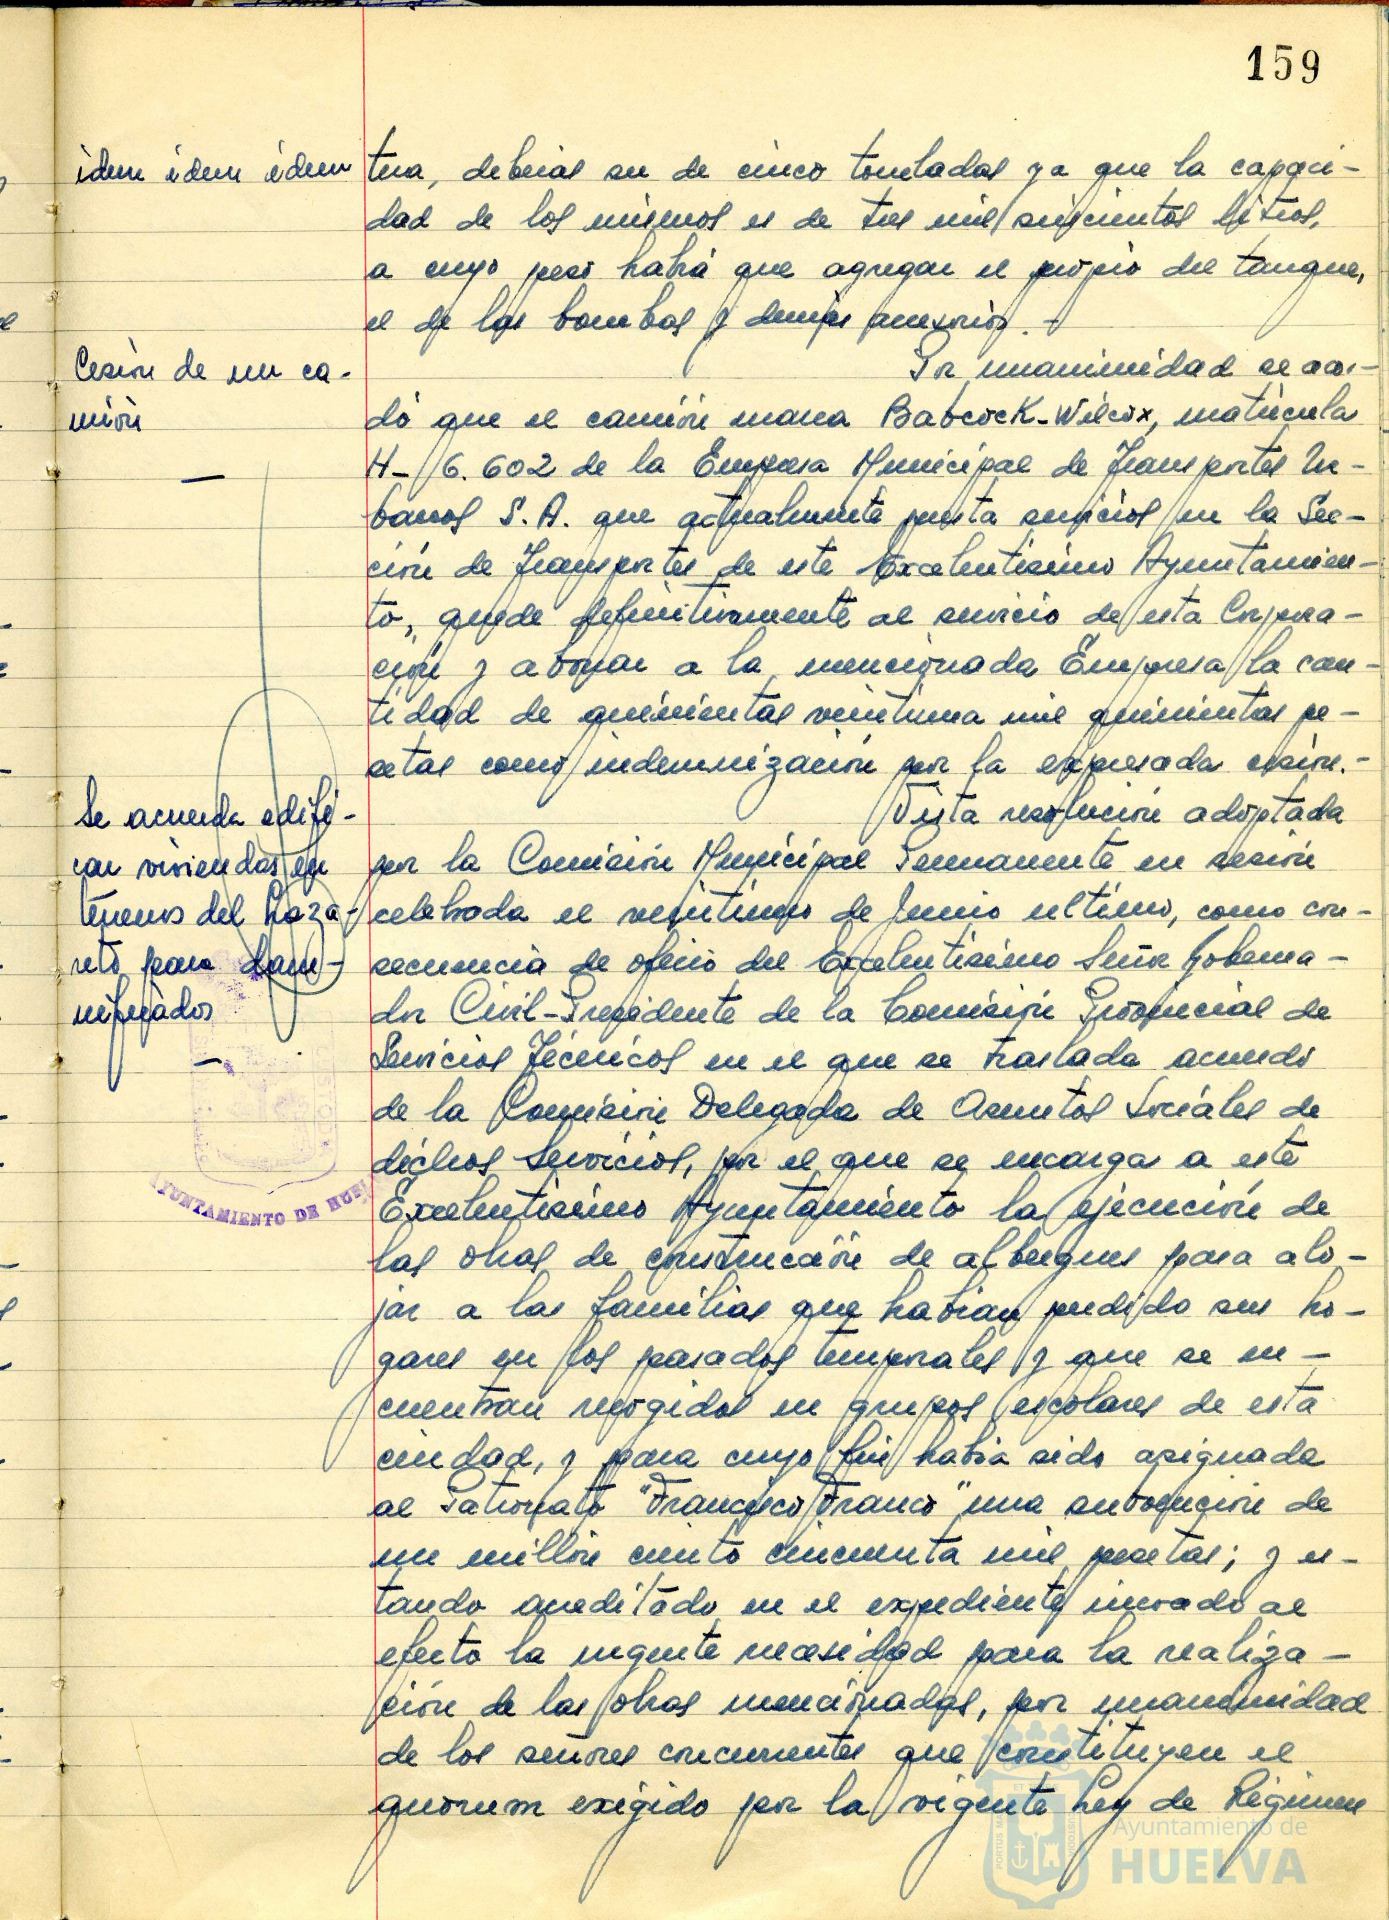 159
idem idem idem
tura, deberias ser de cinco toneladas ya que la capaci-
dad de los mismos es de tres mil seiscientos litros,
a cuyo peso habrá que agregar el propio del tanque,
el de las bombas y demás accesorios.-
Cesión de un ca-
mión
Por unanimidad se acor-
dó que el camión marca Babcock-Wilcox, matrícula
H- 6.602 de la Empresa Municipal de Transportes Ur-
banos S.A. que actualmente presta servicios en la Sec-
ción de Transportes de este Excelentísimo Ayuntamien-
to, quede definitivamente al servicio de esta Corpora-
ción y abonar a la mencionada Empresa la can-
tidad de quinientas veintiuna mil quinientas pe-
setas como indemnización por la expresada cesión.-
Se acuerda edifi-
car viviendas en
terrenos del Laza-
reto para dam-
nificados
Vista resolución adoptada
por la Comisión Municipal Permanente en sesión
celebrada el veintiuno de Junio último, como con-
secuencia de oficio del Excelentísimo Señor Goberna-
dor Civil-Presidente de la Comisión Provincial de
Servicios Técnicos en el que se traslada acuerdo
de la Comisión Delegada de Asuntos Sociales de
dichos Servicios, por el que se encarga a este
Excelentísimo Ayuntamiento la ejecución de
las obras de construcción de albergues para alo-
jar a las familias que habian perdido sus ho-
gares en los pasados temporales y que se en-
cuentran recogidos en grupos escolares de esta
ciudad, y para cuyo fin habia sido asignada
al Patronato "Francisco Franco" una subvención de
un millón ciento cincuenta mil pesetas; y es-
tando acreditado en el expediente incoado al
efecto la urgente necesidad para la realiza-
ción de las obras mencionadas, por unanimidad
de los señores concurrentes que constituyen el
quorum exigido por la vigente Ley de Régimen
AYUNTAMIENTO DE HUELVA
Ayuntamiento de
HUELVA